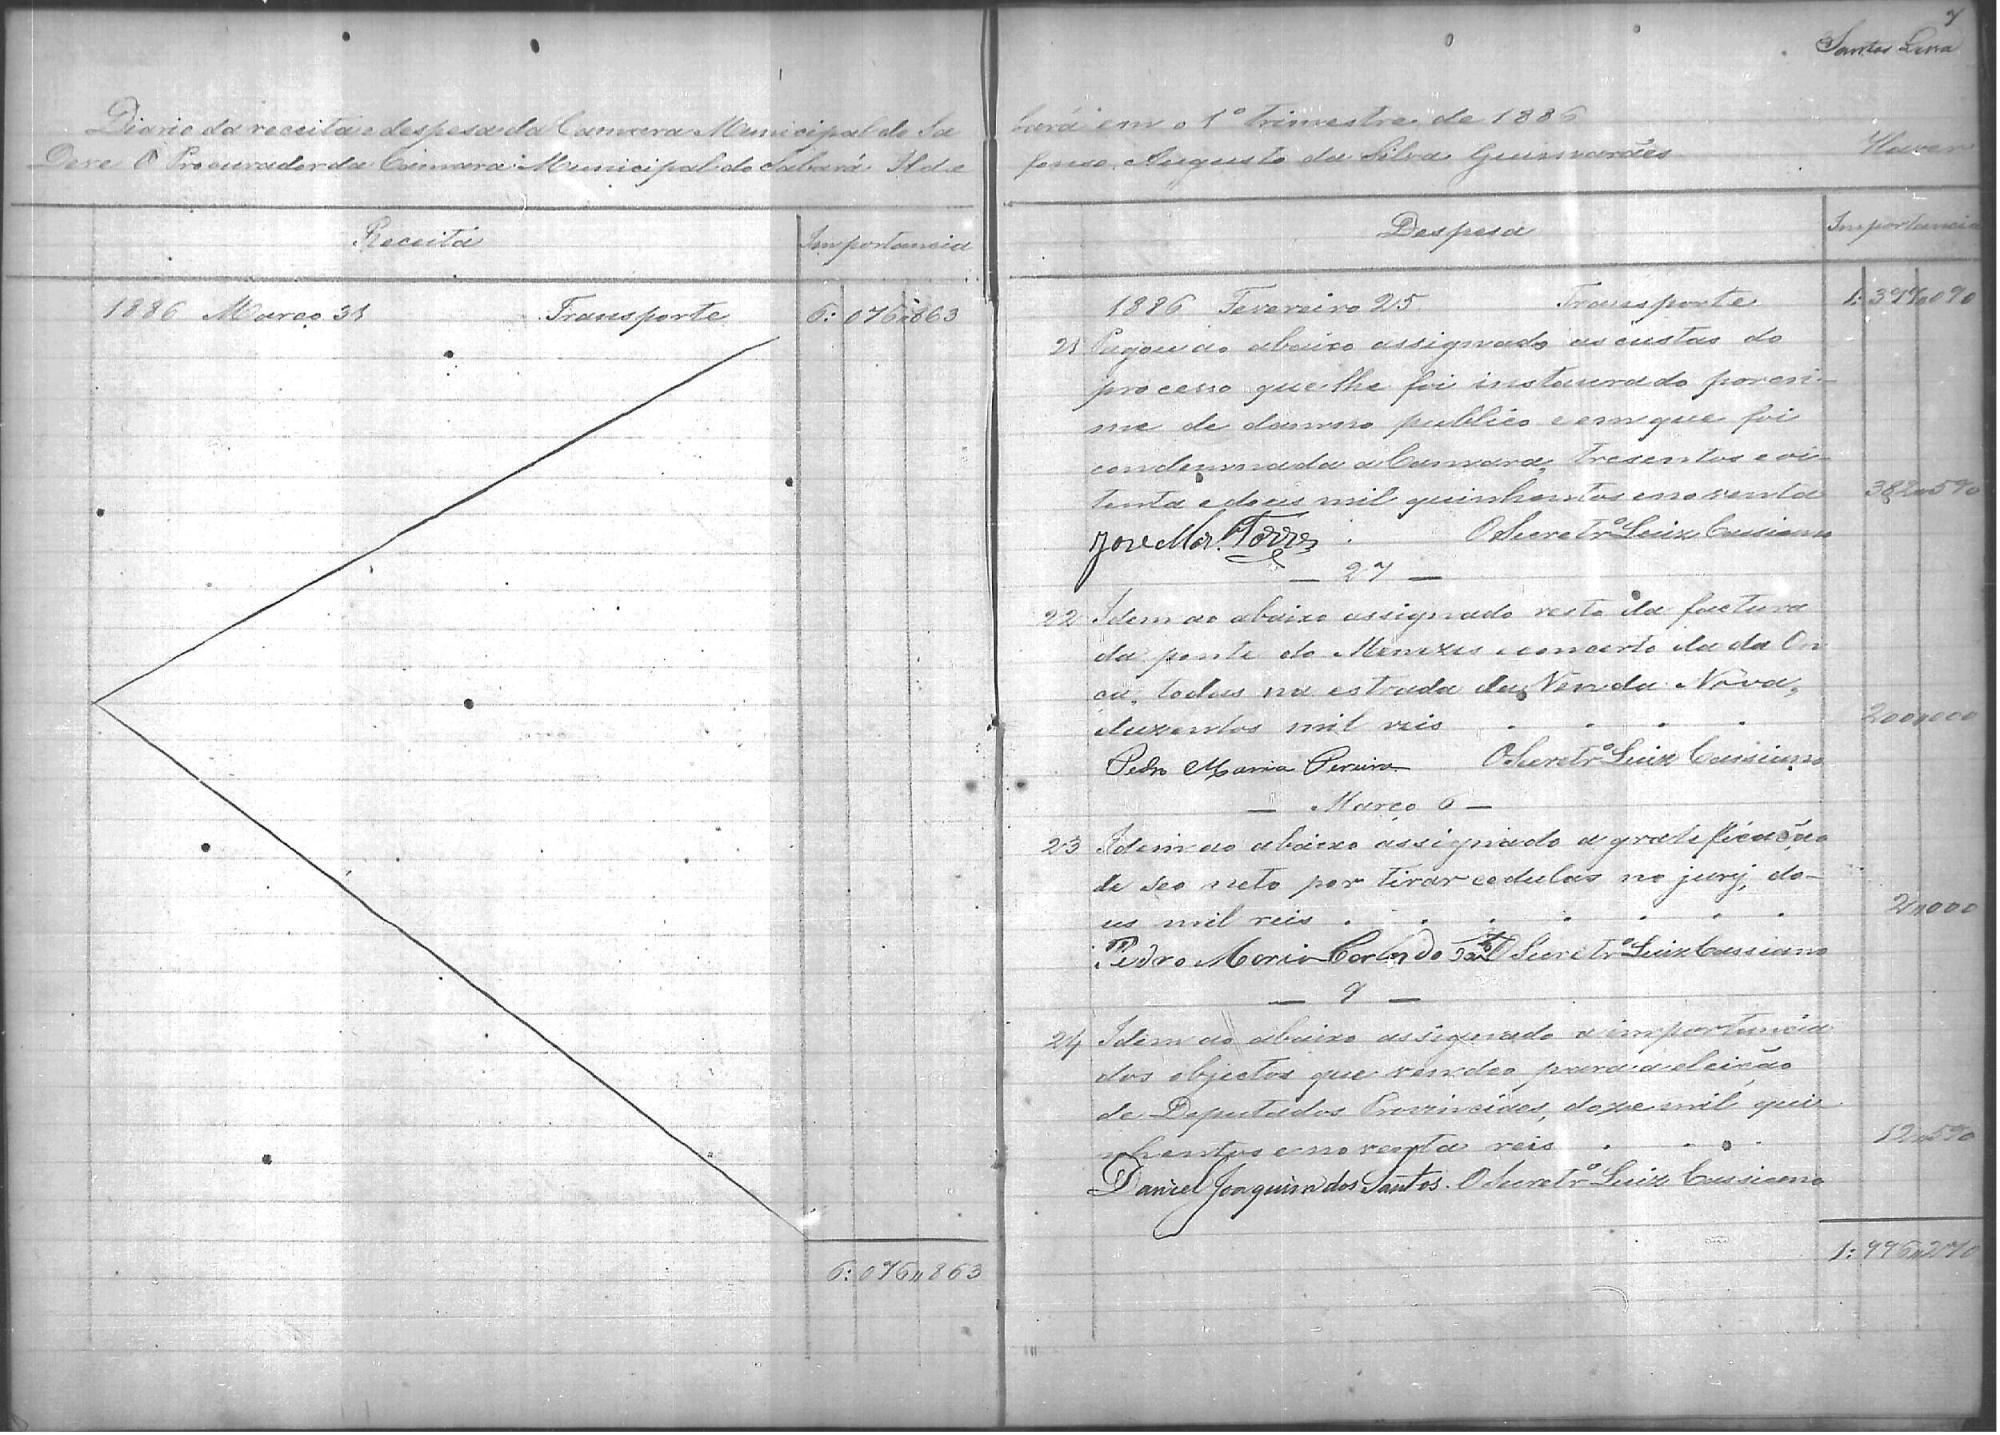 7
Santos Lima
Diario da receita e despesa da Camara Municipal de Sa
Deve O Procurador da Camara Municipal do Sabará Ilde
Receita
Importancia
1886 Março 31 Transporte 6:076"863
6:076"863
bará em o 1º trimestre de 1886
fonso Augusto da Silva Guimarães Haver
Despesa
Importancia
1886 Fevereiro 25 Transporte 1:399"090
21 Pagou ao abaixo assignado as custas do
processo que lhe foi instaurado por cri-
me de damno publico e em que foi
condemnada a Camara, tresentos e oi-
tenta e dous mil quinhentos e noventa 382"590
José Mor. Torres O Secretrº Luiz Cassiano
— 27 —
22 Idem ao abaixo assignado resto da factura
da ponte do Menezes e concerto da da On
ça, todas na estrada da Venda Nova,
duzentos mil reis . . . . 200"000
Pedro Maria Pereira O Secretrº Luiz Cassiano
— Março 6 —
23 Idem ao abaixo assignado a gratificação
de seo neto por tirar cedulas no jury, do-
us mil reis . . . . . . . 2"000
Pedro Maria do O Secretrº Luiz Cassiano
— 9 —
24 Idem ao abaixo assignado a importancia
dos objectos que vendeo para a eleição
de Deputados Provinciaes, doze mil quin
nhentos e noventa reis . . . 12"590
Daniel Joaquim dos Santos. O Secretrº Luiz Cassiano
1:996"270